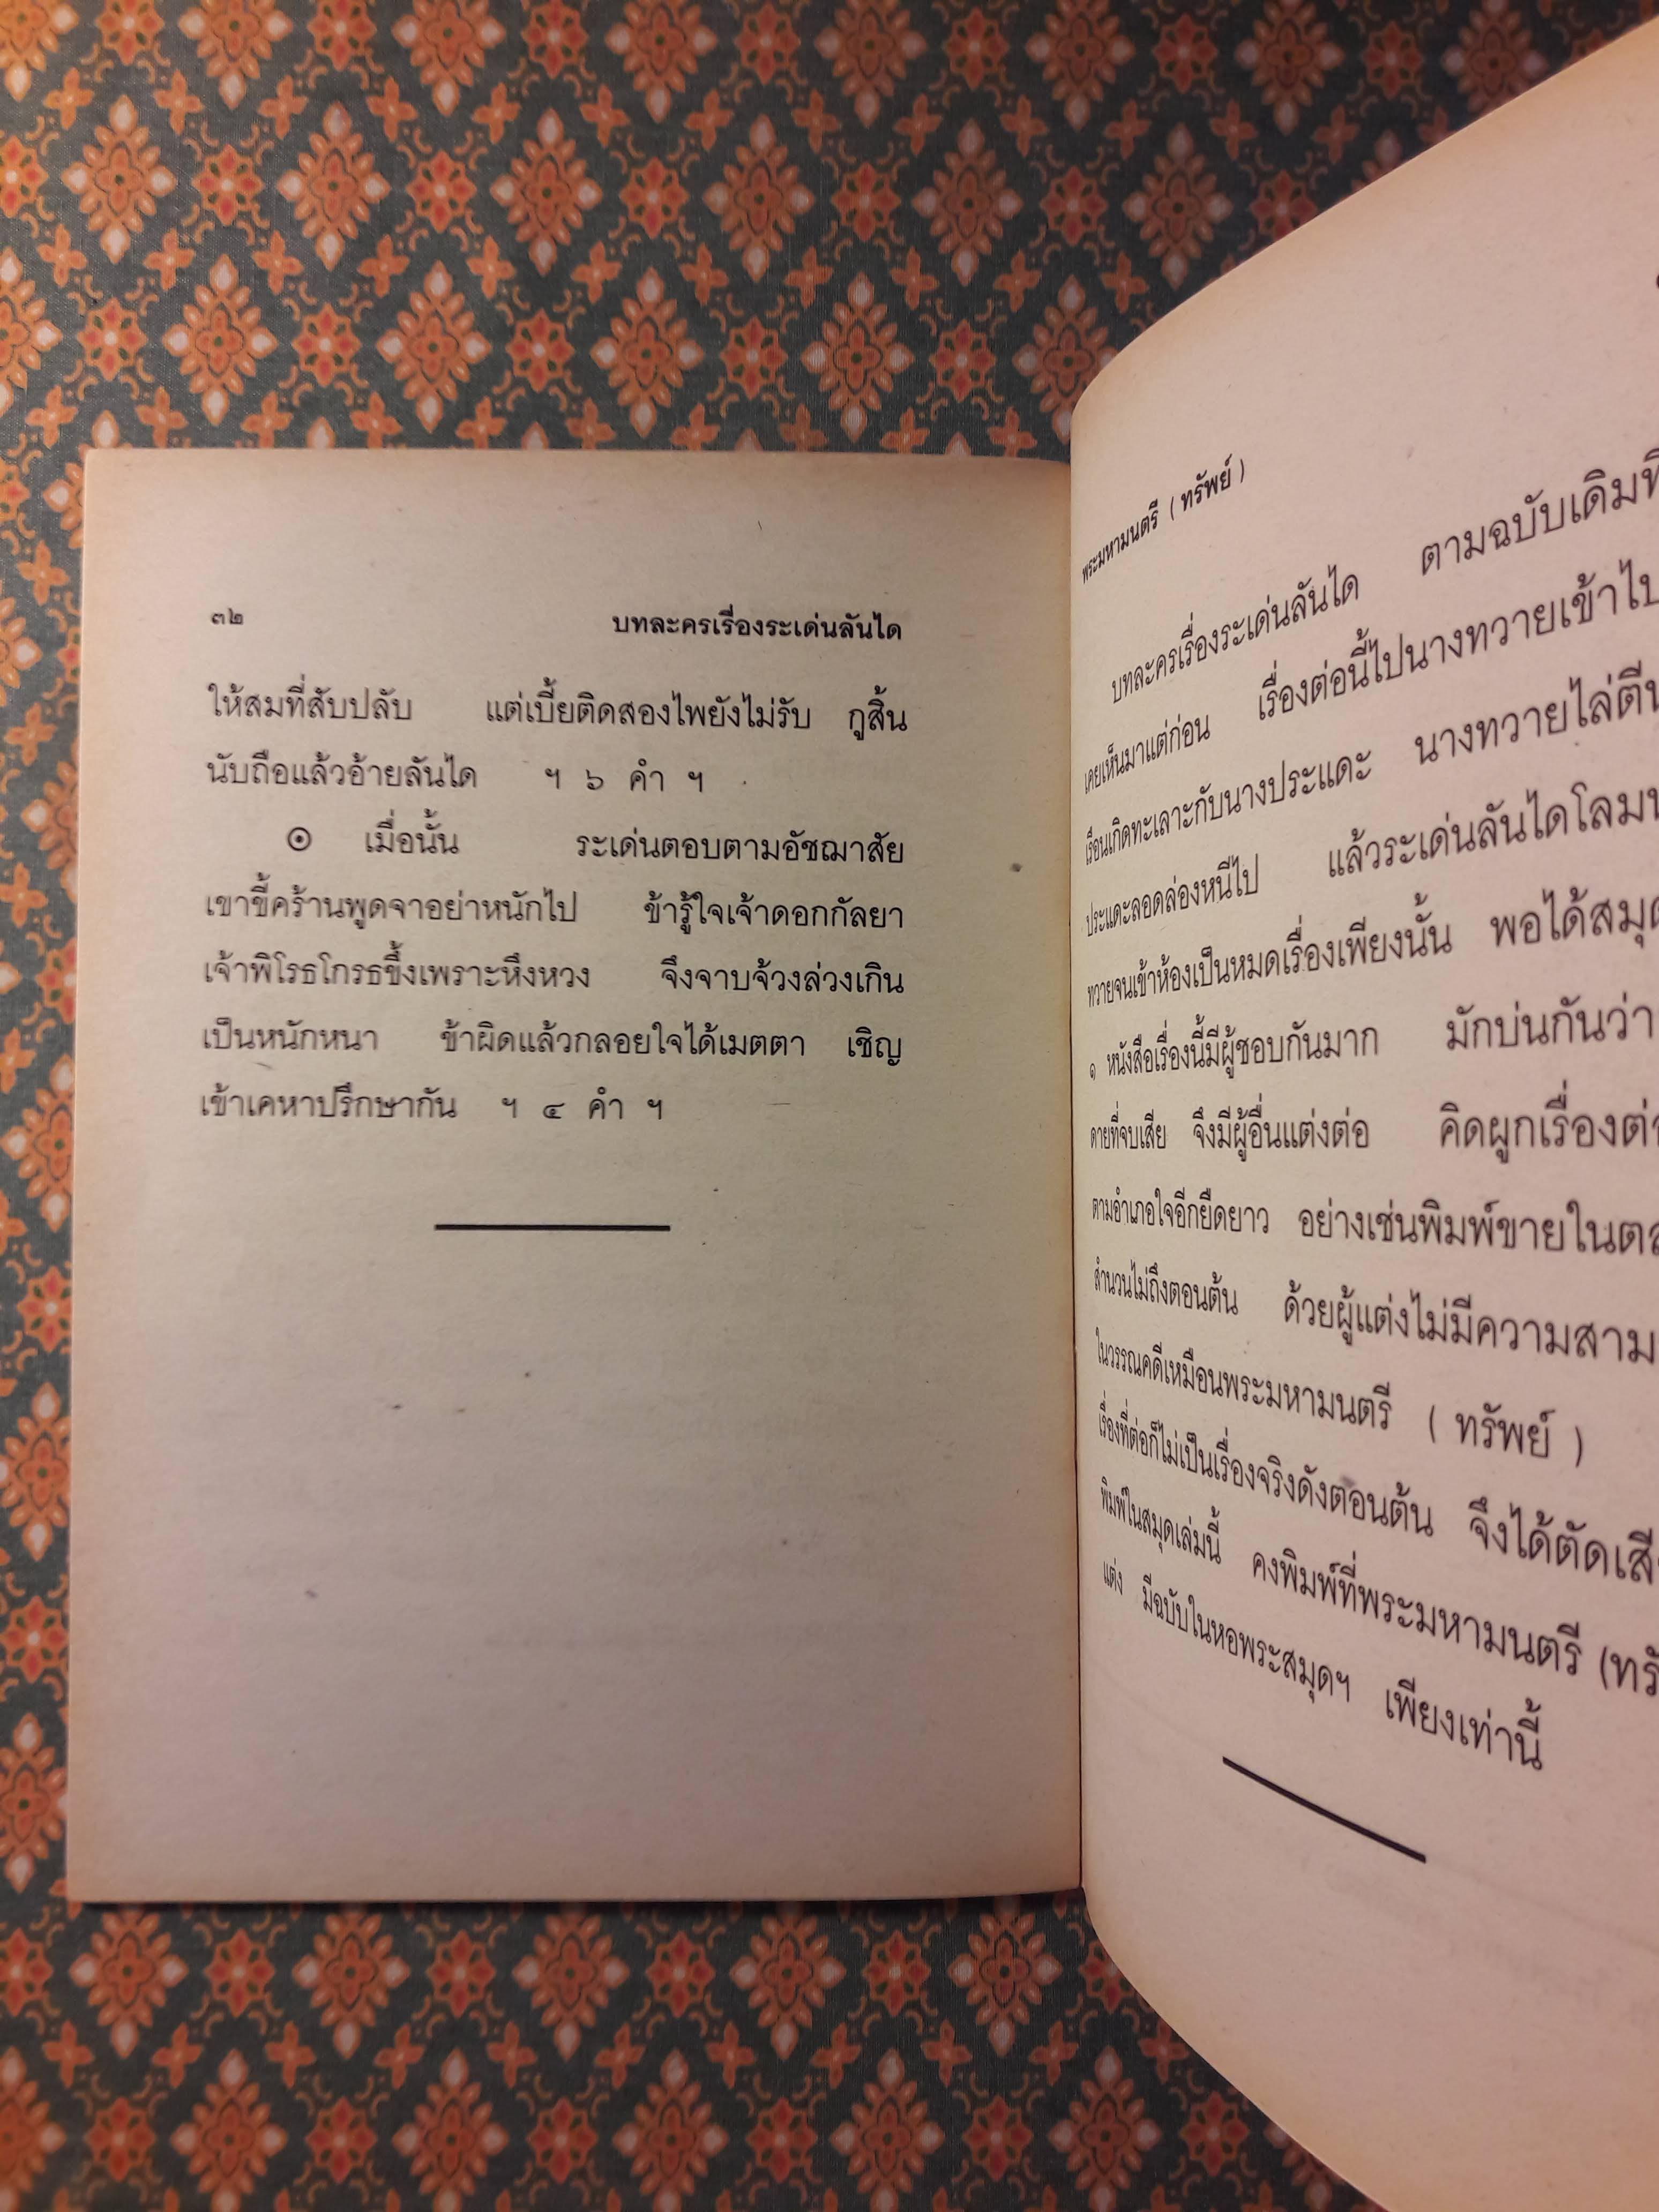 ๓๒ บทละครเรื่องระเด่นลันได
ให้สมที่สับปลับ แต่เบี้ยติดสองไพยังไม่รับ กูสิ้น
นับถือแล้วอ้ายลันได ฯ ๖ คำ ฯ
๏ เมื่อนั้น ระเด่นตอบตามอัชฌาสัย
เขาขี้คร้านพูดจาอย่าหนักไป ข้ารู้ใจเจ้าดอกกัลยา
เจ้าพิโรธโกรธขึ้งเพราะหึงหวง จึงจาบจ้วงล่วงเกิน
เป็นหนักหนา ข้าผิดแล้วกลอยใจได้เมตตา เชิญ
เข้าเคหาปรึกษากัน ฯ ๔ คำ ฯ
พระมหามนตรี ( ทรัพย์ )
บทละครเรื่องระเด่นลันได ตามฉบับเดิมที่
เคยเห็นมาแต่ก่อน เรื่องต่อนี้ไปนางทวายเข้าไป
เรือนเกิดทะเลาะกับนางประแดะ นางทวายไล่ตีน
ประแดะลอดล่องหนีไป แล้วระเด่นลันไดโลม
ทวายจนเข้าห้องเป็นหมดเรื่องเพียงนั้น พอได้สมุด
๑ หนังสือเรื่องนี้มีผู้ชอบกันมาก มักบ่นกันว่า
ตายที่จบเสีย จึงมีผู้อื่นแต่งต่อ คิดผูกเรื่องต่อ
ตามอำเภอใจอีกยืดยาว อย่างเช่นพิมพ์ขายในตล
สำนวนไม่ถึงตอนต้น ด้วยผู้แต่งไม่มีความสาม
ในวรรณคดีเหมือนพระมหามนตรี ( ทรัพย์ )
เรื่องที่ต่อก็ไม่เป็นเรื่องจริงดังตอนต้น จึงได้ตัดเสี
พิมพ์ในสมุดเล่มนี้ คงพิมพ์ที่พระมหามนตรี (ทรั
แต่ง มีฉบับในหอพระสมุดฯ เพียงเท่านี้